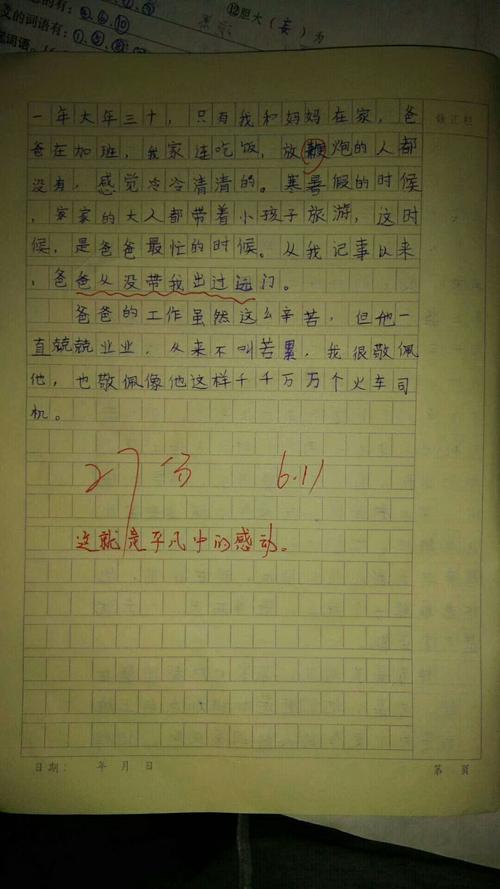 ⑫胆大（妄）为
义的词语有：①、⑤、⑧
一年大年三十，只有我和妈妈在家，爸
爸在加班，我家连吃饭，放鞭炮的人都
没有，感觉冷冷清清的。寒暑假的时候
，家家的大人都带着小孩子旅游，这时
候，是爸爸最忙的时候。从我记事以来
，爸爸从没带我出过远门。
爸爸的工作虽然这么辛苦，但他一
直兢兢业业，从来不叫苦累，我很敬佩
他，也敬佩像他这样千千万万个火车司
机。
27分 6.11
这就是平凡中的感动。
日期： 年 月 日 第 頁